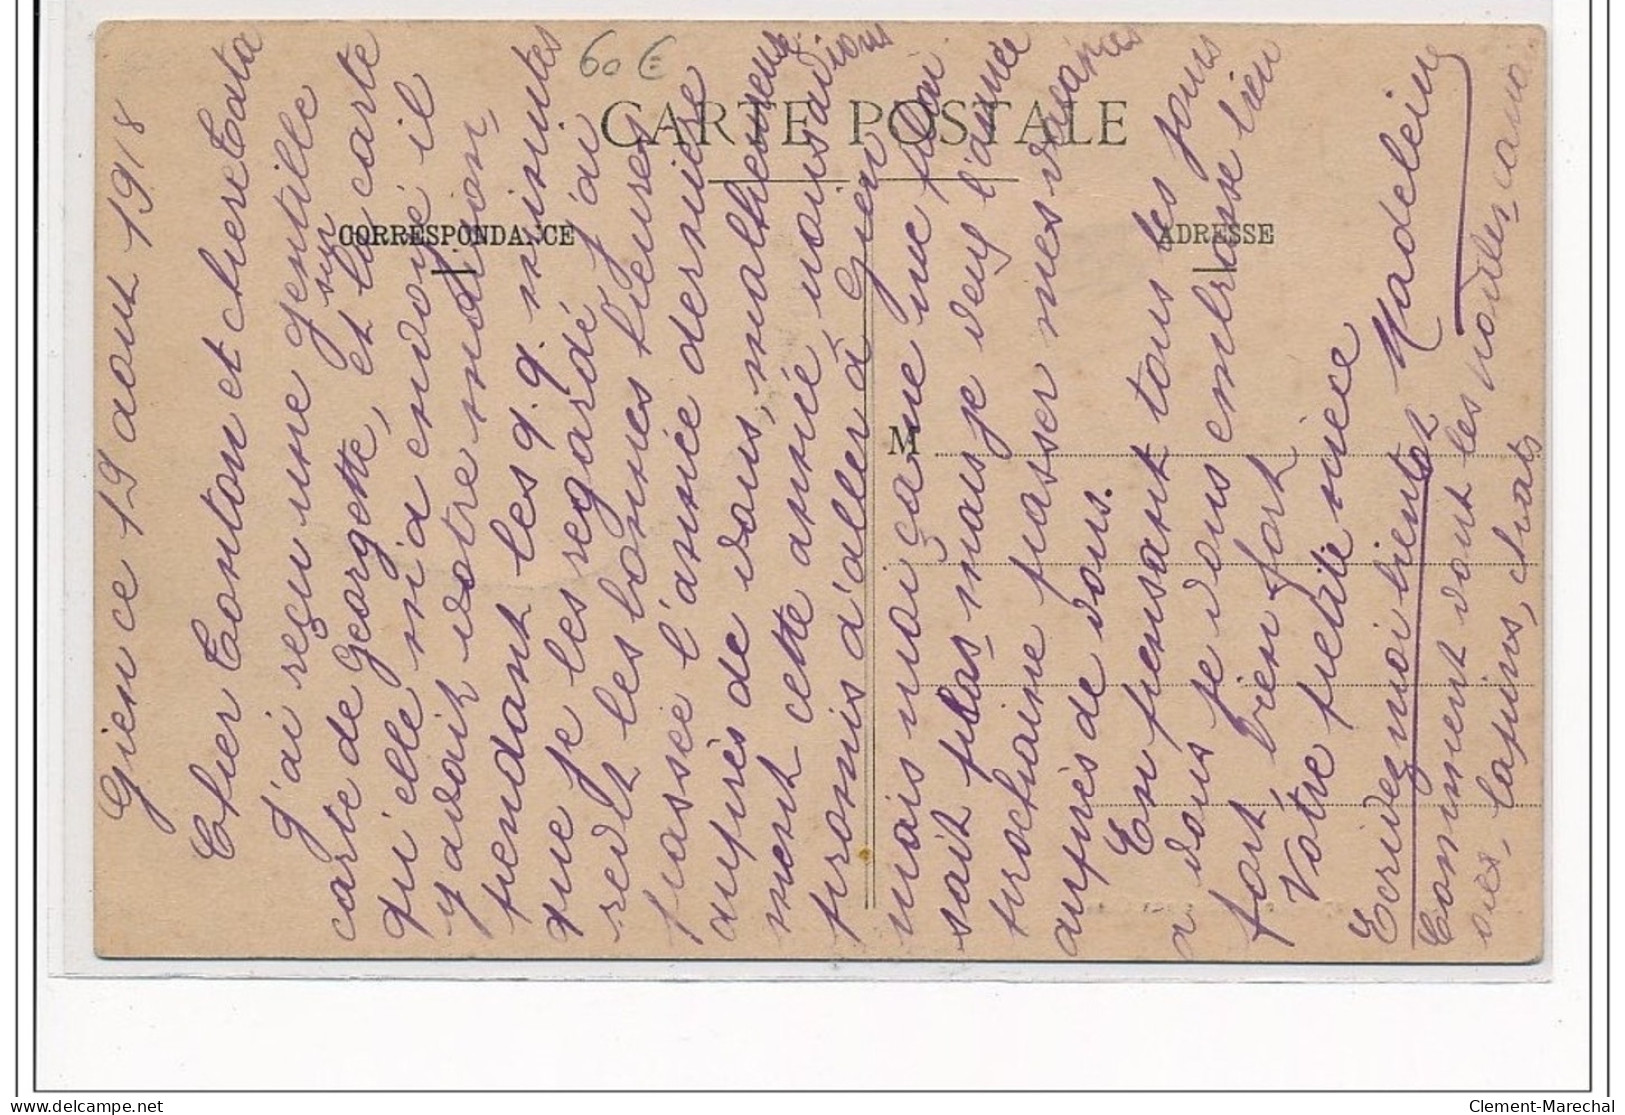 60 €
CARTE POSTALE
CORRESPONDANCE
ADRESSE
M
Gien ce 19 aout 1918
Cher Tonton et chere Tata
J'ai reçu une gentille
carte de Georgette, sur et la carte
qu'elle m'a envoyé il
y avait votre maison,
pendant les q.q. minutes
que je les regardé j'ai
revit les bonnes heures
passée l'année dernière
auprès de vous, malheureuse
ment cette année nous avions
promis d'aller à Gien
mais moi ça ne me plai
sait pas mais je veux l'année
prochaine passer mes vacances
auprès de vous.
En pensant tous les jours
a vous je vous embrasse bien
fort bien fort
Votre petite nièce
Madeleine
Ecrivez moi bientot
Comment vont les poules, canards
oies, lapins, chats
Clement-Marechal